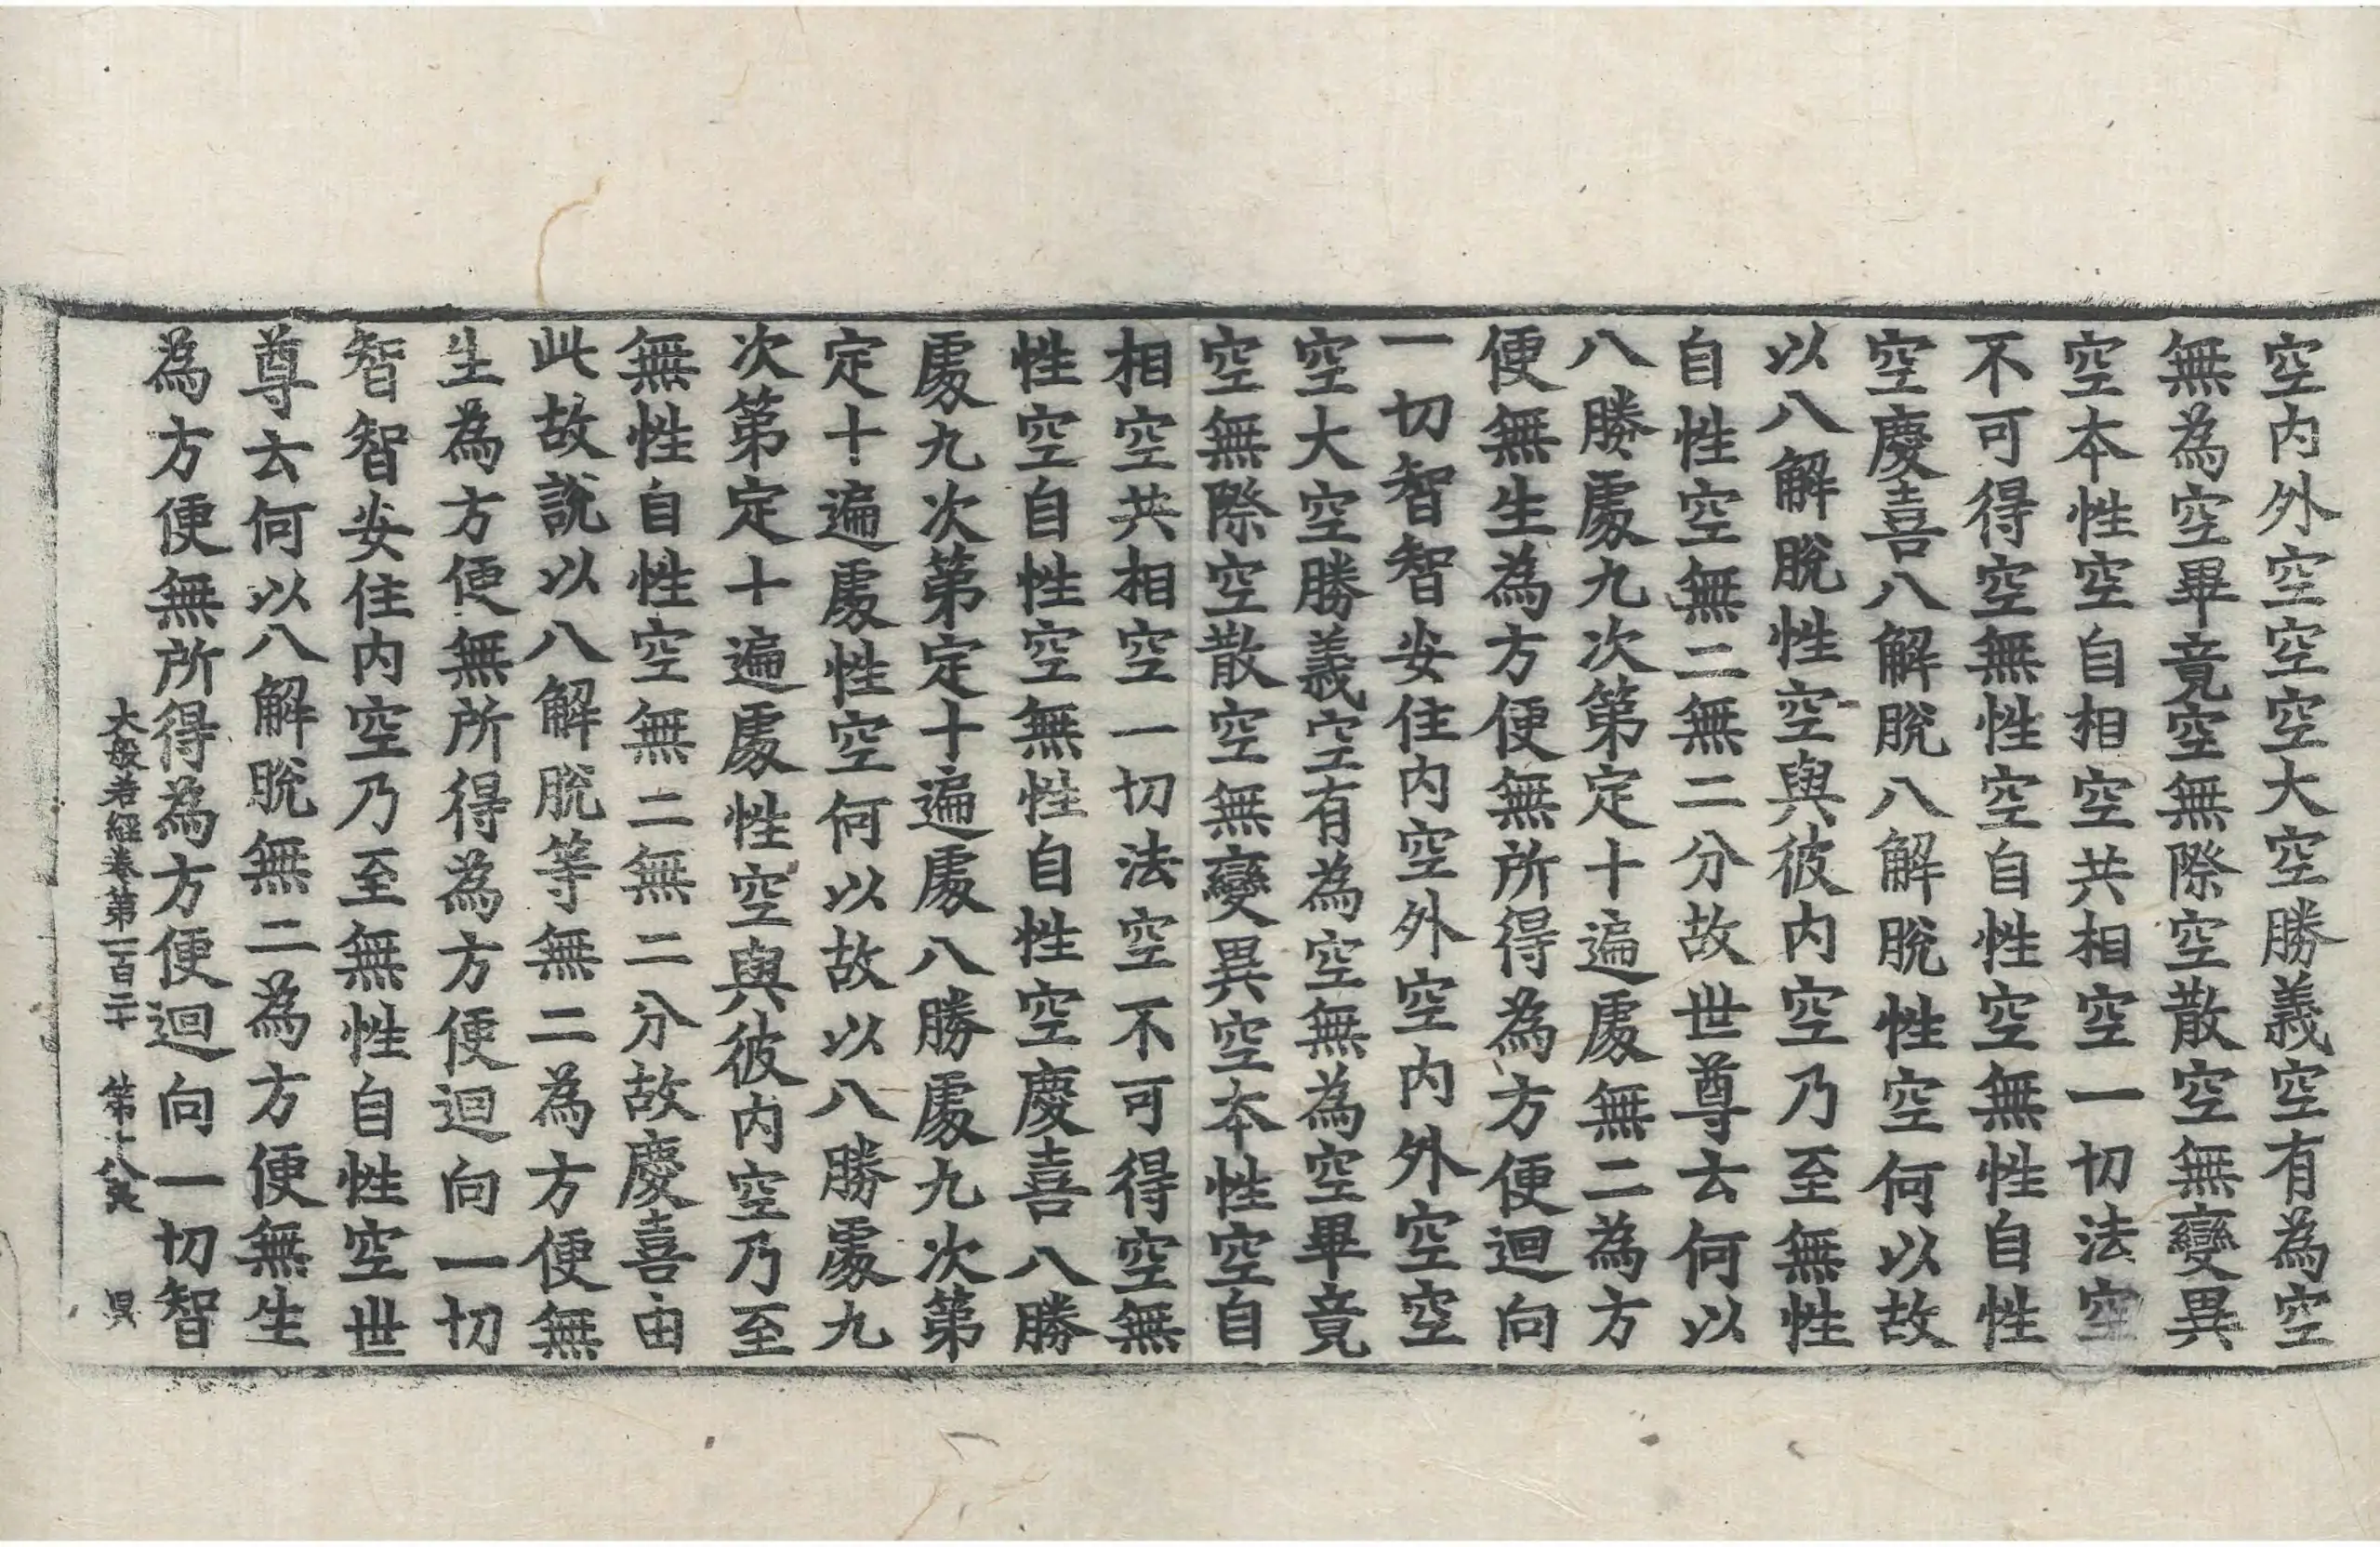 空内外空空空大空勝義空有為空
無為空畢竟空無際空散空無變異
空本性空自相空共相空一切法空
不可得空無性空自性空無性自性
空慶喜八解脫八解脫性空何以故
以八解脫性空與彼内空乃至無性
自性空無二無二分故世尊云何以
八勝處九次第定十遍處無二為方
便無生為方便無所得為方便迴向
一切智智安住内空外空内外空空
空大空勝義空有為空無為空畢竟
空無際空散空無變異空本性空自
相空共相空一切法空不可得空無
性空自性空無性自性空慶喜八勝
處九次第定十遍處八勝處九次第
定十遍處性空何以故以八勝處九
次第定十遍處性空與彼内空乃至
無性自性空無二無二分故慶喜由
此故說以八解脫等無二為方便無
生為方便無所得為方便迴向一切
智智安住内空乃至無性自性空世
尊云何以八解脫無二為方便無生
為方便無所得為方便迴向一切智
大般若經卷第一百二十 第十八張 昃